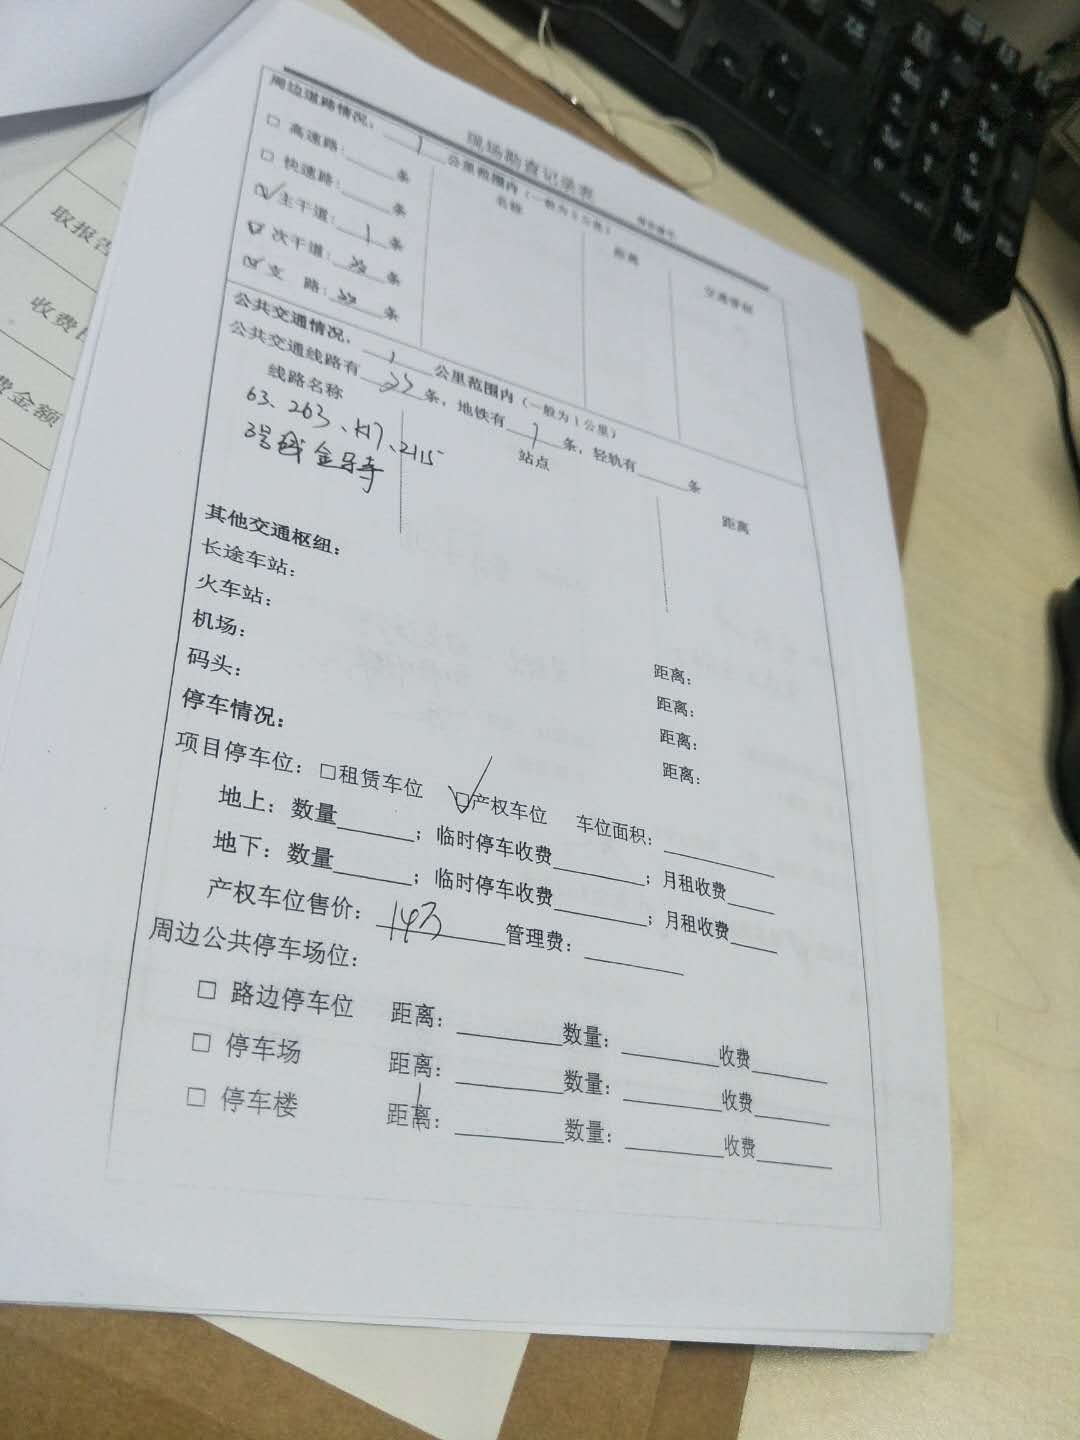 现场勘查记录表
周边道路情况，1公里范围内（一般为1公里）
名称 距离 交通管制
□ 高速路：____条
□ 快速路：____条
☑ 主干道：1条
☑ 次干道：____条
☑ 支 路：____条
公共交通情况，1公里范围内（一般为1公里）
公共交通线路有____条，地铁有1条，轻轨有____条
线路名称 站点 距离
63、263、417、2115
3号线金马寺
其他交通枢纽：
长途车站： 距离：
火车站： 距离：
机场： 距离：
码头： 距离：
停车情况：
项目停车位：□租赁车位 ☑产权车位 车位面积：____
地上：数量____；临时停车收费____；月租收费____
地下：数量____；临时停车收费____；月租收费____
产权车位售价：14万 管理费：____
周边公共停车场位：
□ 路边停车位 距离：____数量：____收费____
□ 停车场 距离：____数量：____收费____
□ 停车楼 距离：____数量：____收费____
取报告
收费
费金额